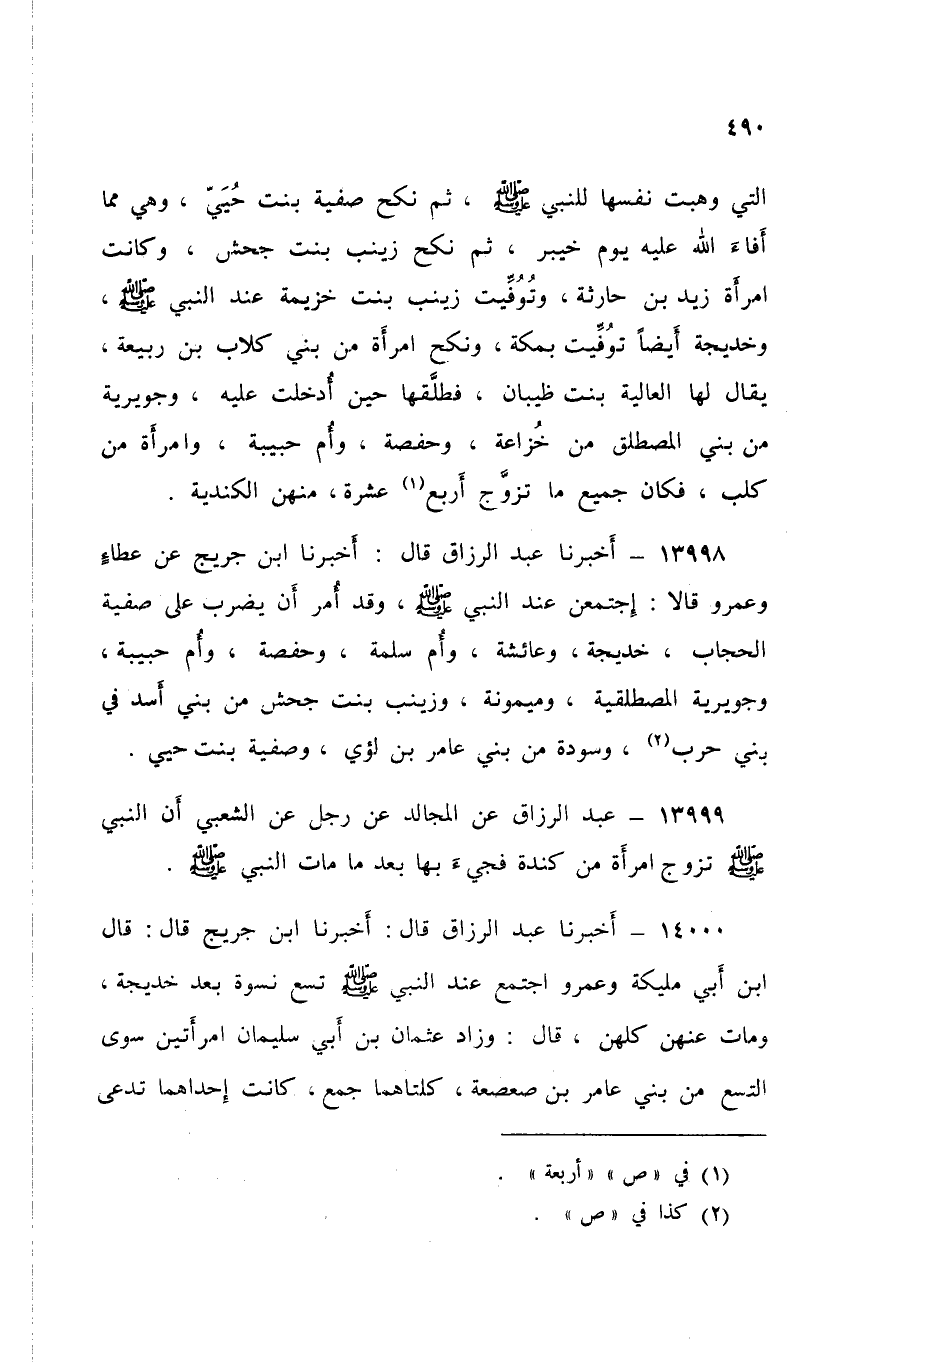 ٤٩٠
التي وهبت نفسها للنبي ﷺ ، ثم نكح صفية بنت حُيَيّ ، وهي مما
أَفاءَ الله عليه يوم خيبر ، ثم نكح زينب بنت جحش ، وكانت
امرأَة زيد بن حارثة ، وتُوُفِّيت زينب بنت خزيمة عند النبي ﷺ ،
وخديجة أَيضاً توُفِّيت بمكة ، ونكح امرأَة من بني كلاب بن ربيعة ،
يقال لها العالية بنت ظبيان ، فطلَّقها حين أُدخلت عليه ، وجويرية
من بني المصطلق من خُزاعة ، وحفصة ، وأُم حبيبة ، وامرأَة من
كلب ، فكان جميع ما تزوَّج أَربع(١) عشرة ، منهن الكندية .
١٣٩٩٨ – أَخبرنا عبد الرزاق قال : أَخبرنا ابن جريج عن عطاءٍ
وعمرو قالا : إجتمعن عند النبي ﷺ ، وقد أُمر أَن يضرب على صفية
الحجاب ، خديجة ، وعائشة ، وأُم سلمة ، وحفصة ، وأُم حبيبة ،
وجويرية المصطلقية ، وميمونة ، وزينب بنت جحش من بني أَسد في
بني حرب(٢) ، وسودة من بني عامر بن لؤي ، وصفية بنت حيي .
١٣٩٩٩ – عبد الرزاق عن المجالد عن رجل عن الشعبي أَن النبي
ﷺ تزوج امرأَة من كندة فجيءَ بها بعد ما مات النبي ﷺ .
١٤٠٠٠ – أَخبرنا عبد الرزاق قال : أَخبرنا ابن جريج قال : قال
ابن أَبي مليكة وعمرو اجتمع عند النبي ﷺ تسع نسوة بعد خديجة ،
ومات عنهن كلهن ، قال : وزاد عثمان بن أَبي سليمان امرأَتين سوى
التسع من بني عامر بن صعصعة ، كلتاهما جمع ، كانت إحداهما تدعى
(١) في « ص » « أربعة » .
(٢) كذا في « ص » .